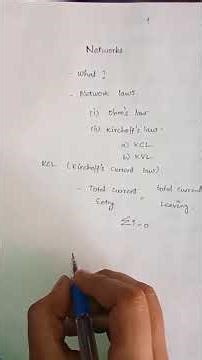 Networks
- What ?
- Network laws
(i) Ohm's law
(ii) Kirchoff's law
a) KCL
b) KVL
KCL (Kirchoff's current law)
- Total current = Total current
Entry Leaving
Σi=0